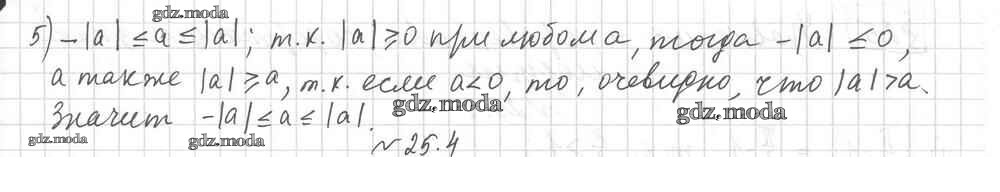 gdz.moda
5) -|a| ≤ a ≤ |a|; т.к. |a| ≥ 0 при любом a, тогда -|a| ≤ 0,
а также |a| ≥ a, т.к. если a < 0, то, очевидно, что |a| > a.
gdz.moda gdz.moda
Значит -|a| ≤ a ≤ |a|.
gdz.moda gdz.moda
№25.4